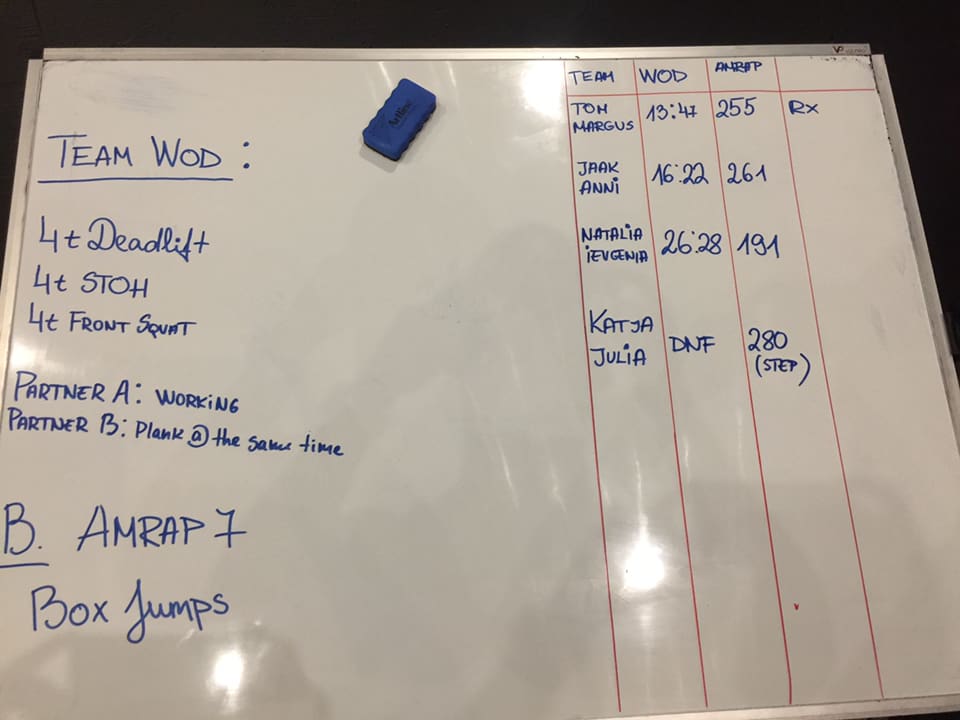 TEAM WOD:
4t Deadlift
4t STOH
4t FRONT SQUAT
PARTNER A: WORKING
PARTNER B: Plank @ the same time
B. AMRAP 7
Box Jumps
TEAM WOD AMRAP
TOM MARGUS 13:47 255 Rx
JAAK ANNi 16:22 261
NATALiA iEVGENIA 26:28 191
KATJA JULiA DNF 280 (STEP)
Artline